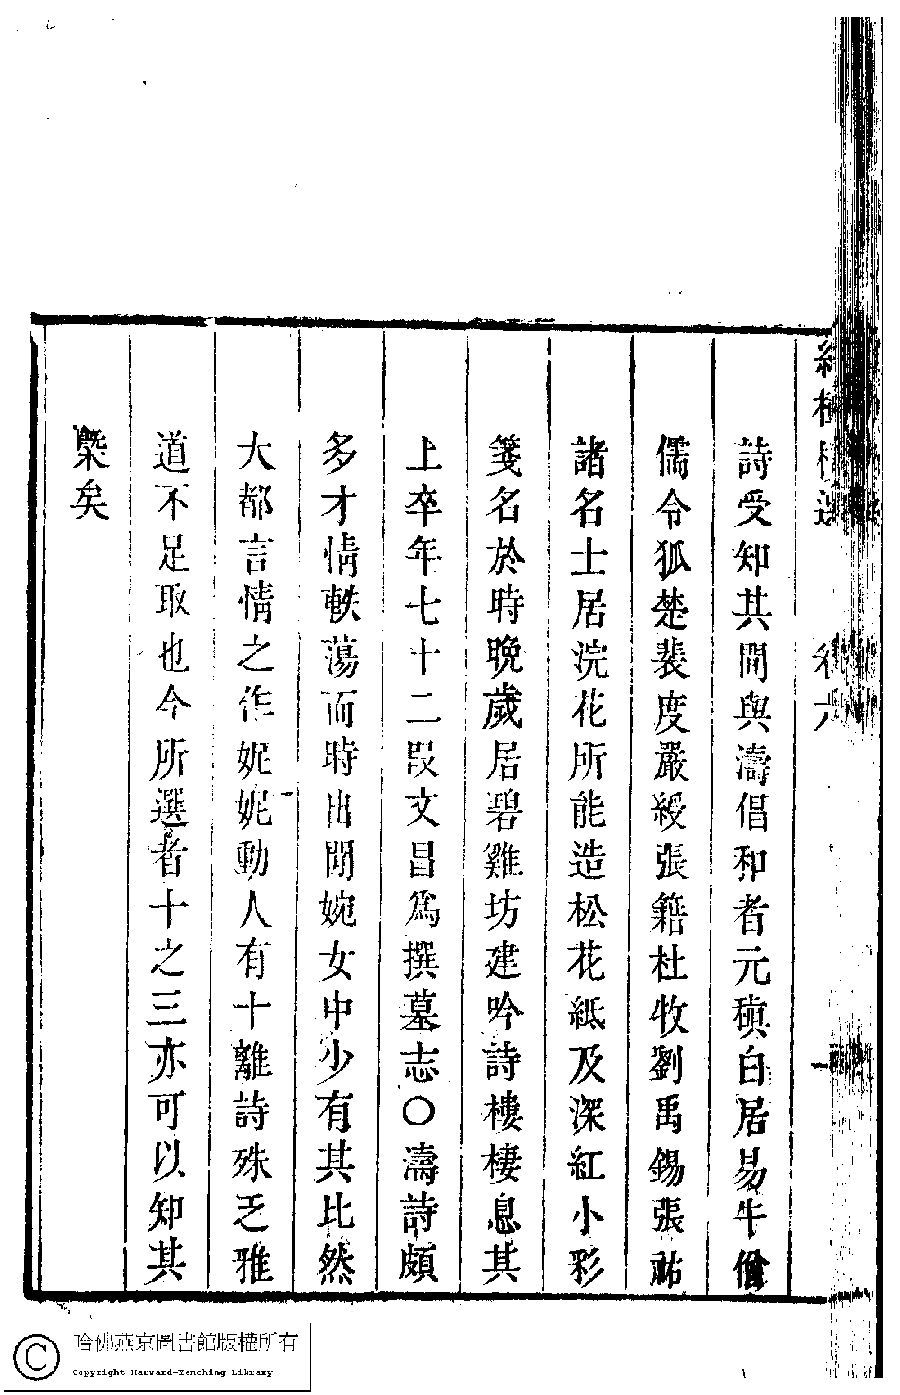 詩受知其間與濤倡和者元稹白居易牛僧
儒令狐楚裴度嚴綬張籍杜牧劉禹錫張祐
諸名士居浣花所能造松花紙及深紅小彩
箋名於時晚歲居碧雞坊建吟詩樓棲息其
上卒年七十二段文昌爲撰墓志〇濤詩頗
多才情軼蕩而時出閒婉女中少有其比然
大都言情之作妮妮動人有十離詩殊乏雅
道不足取也今所選者十之三亦可以知其
槩矣
卷六
哈佛燕京圖書館版權所有
Copyright Harvard-Yenching Library